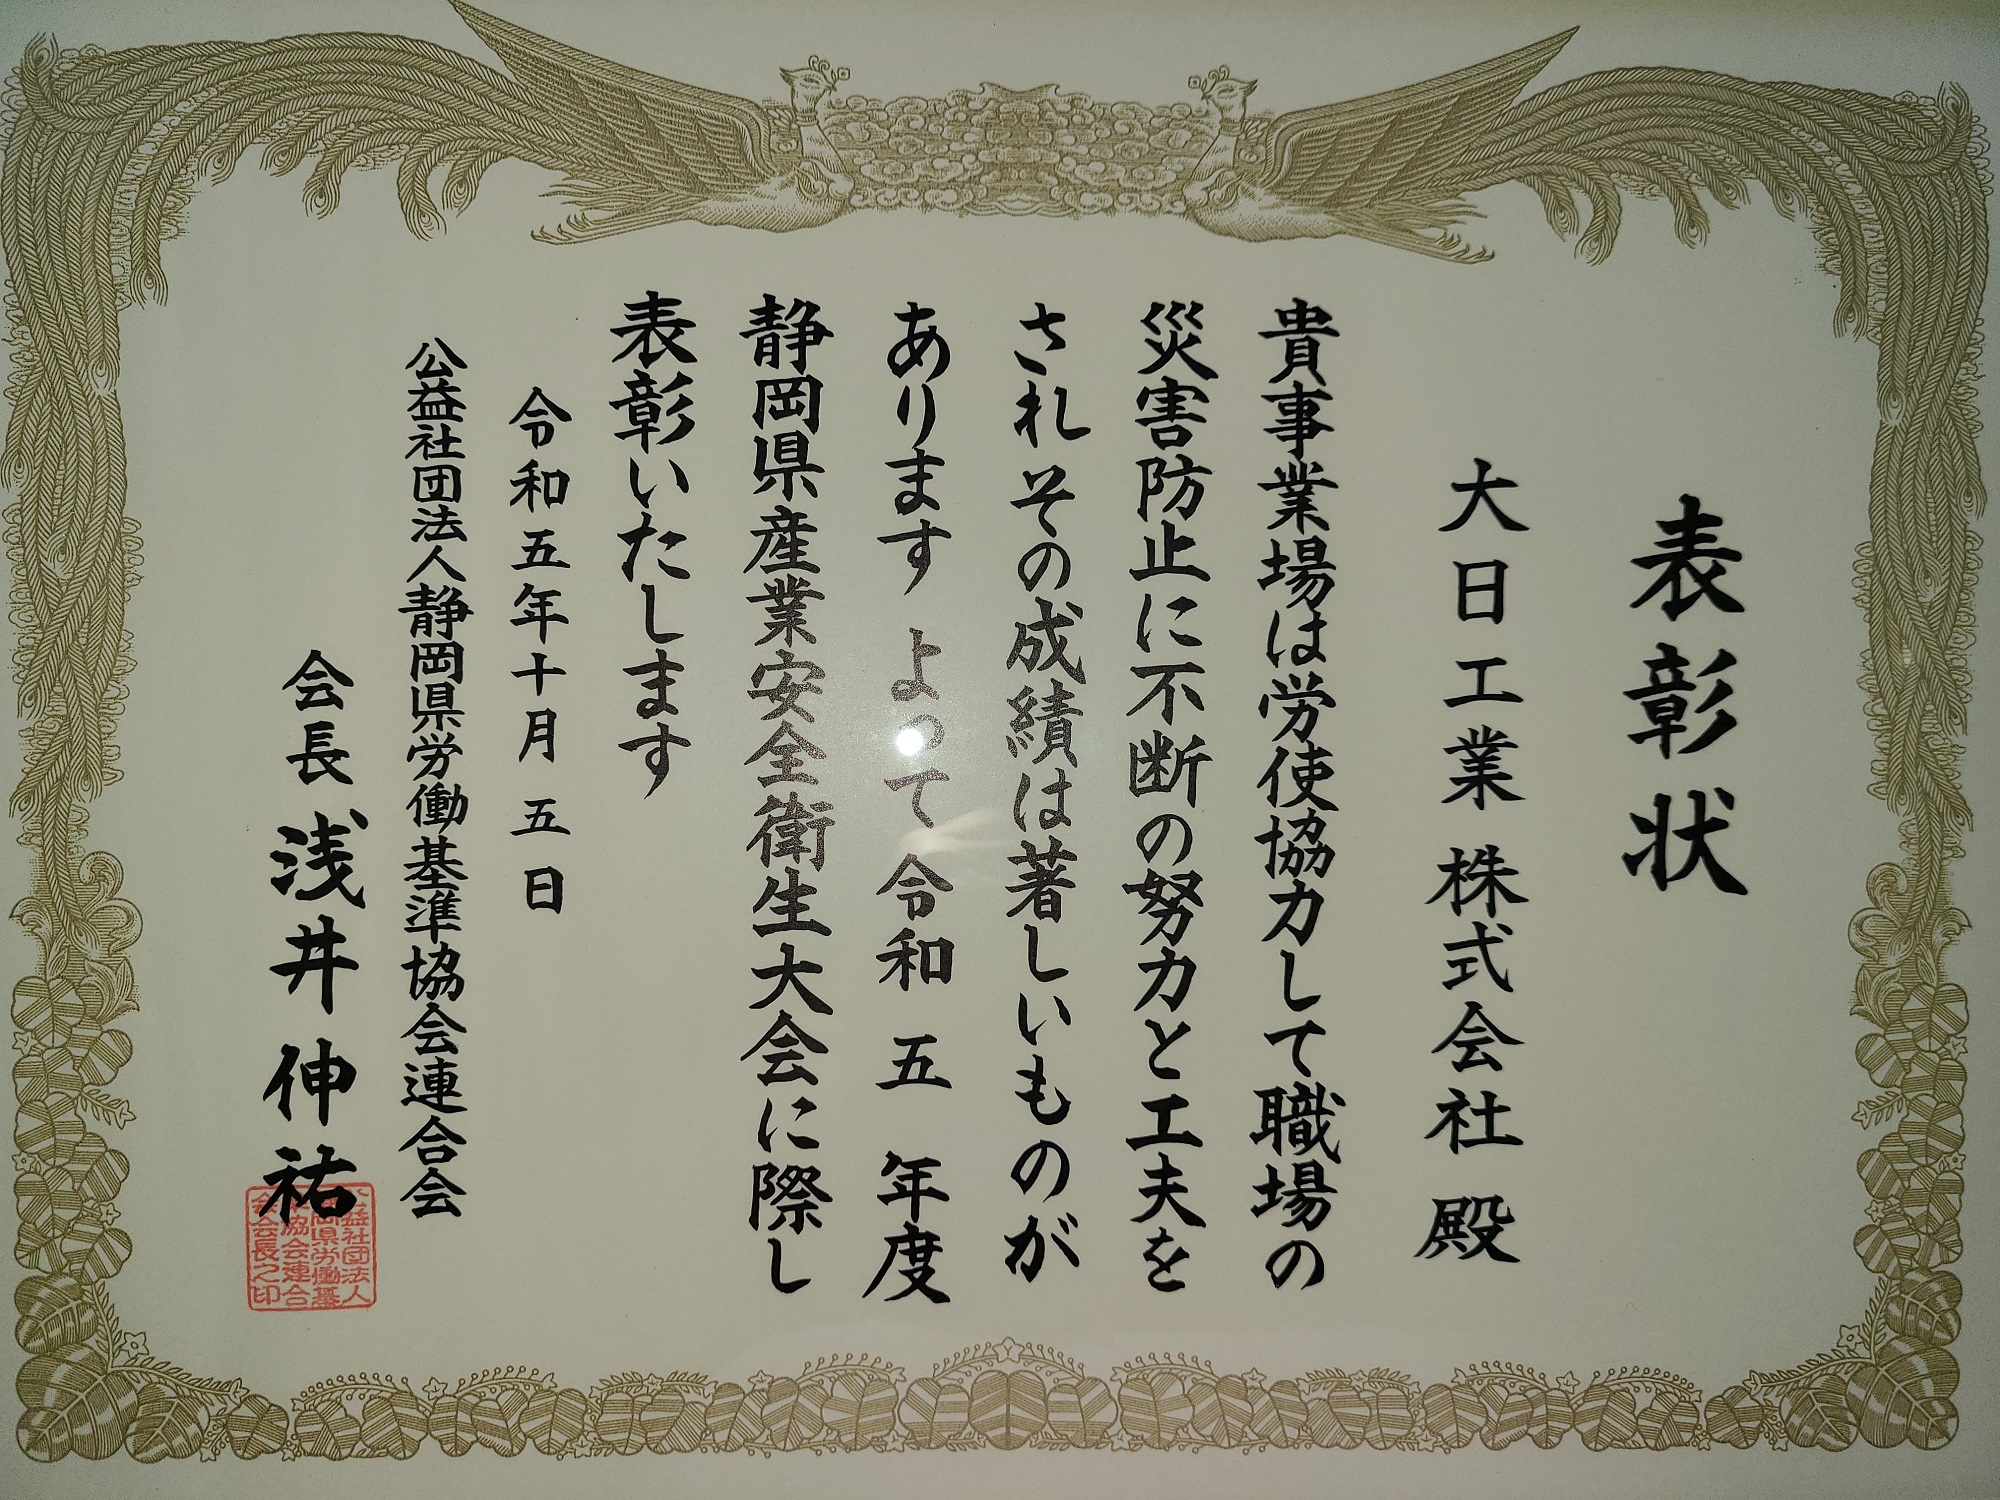 表彰状
大日工業株式会社 殿
貴事業場は労使協力して職場の
災害防止に不断の努力と工夫を
され その成績は著しいものが
あります よって令和 五 年度
静岡県産業安全衛生大会に際し
表彰いたします
令和五年十月五日
公益社団法人静岡県労働基準協会連合会
会長 浅井伸祐
益社団法人
岡県労働基
協会連合
会会長之印